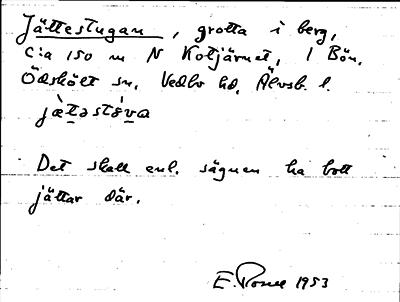 Jättestugan, grotta i berg,
c:a 150 m N Kotjärnet, 1 Bön,
Ödskölt sn, Vedbo hd, Älvsb. l.
Det skall enl. sägnen ha bott
jättar där.
E. 1953